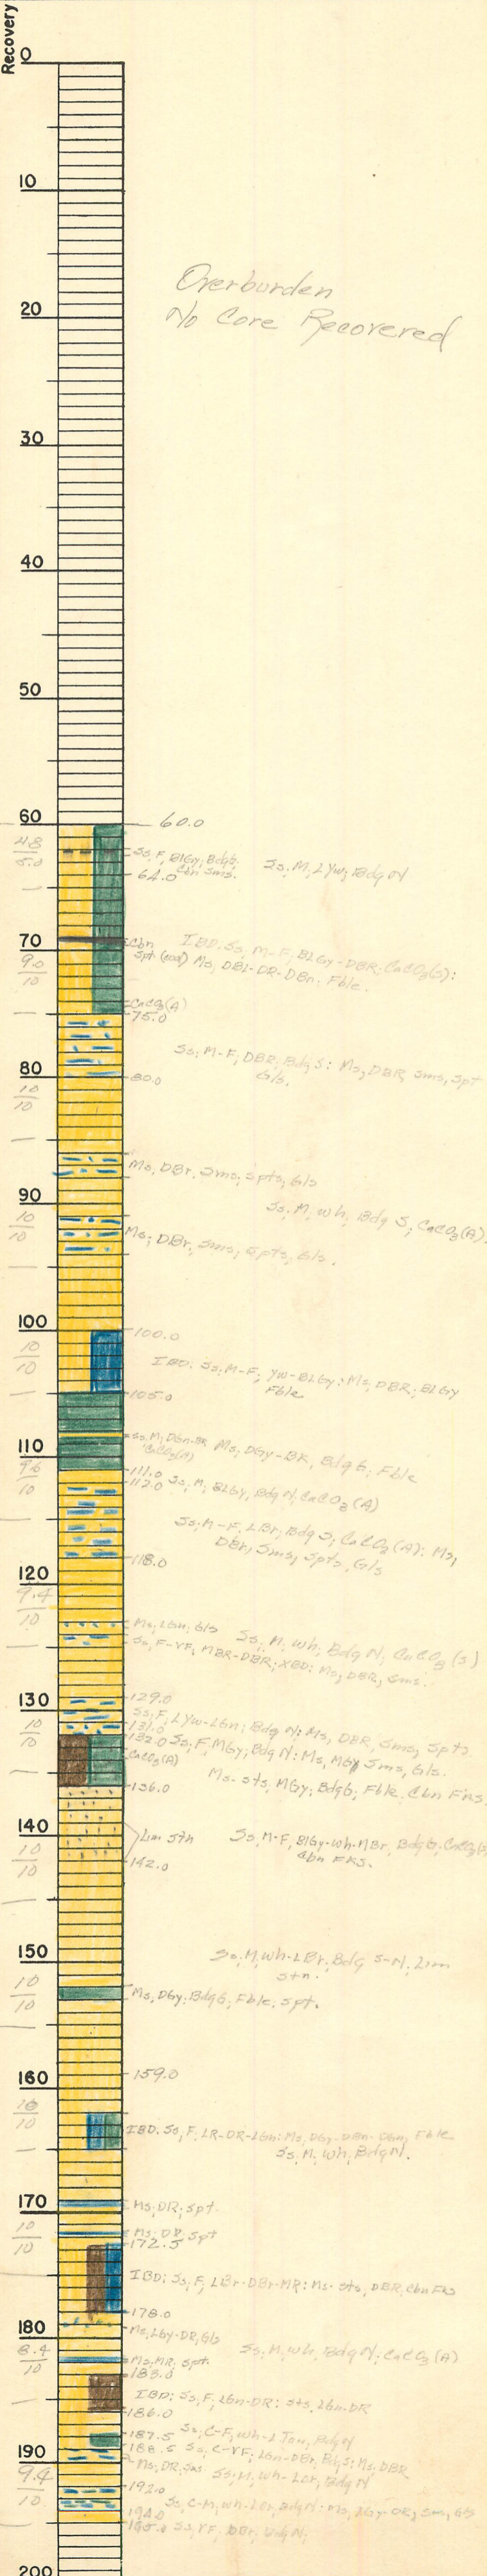 Recovery
0
10
Overburden
20
No Core Recovered
30
40
50
60
60.0
4.8
5.0
Ss, F, BlGy; Bdg G;
Cbn Sms.
64.0
Ss, M, LYw; Bdg N
70
Cbn
Spt (coal)
9.0
10
IBD. Ss, M-F, BLGy-DBR; CaCO3(S):
Ms, DBL-DR-DBn; Fble.
CaCO3(A)
75.0
Ss; M-F; DBR; Bdg S: Ms, DBR, Sms, Spt
Gls.
80
80.0
10
10
Ms, DBr, Sms, Spts, Gls
90
Ss, M, Wh, Bdg S, CaCO3(A).
10
10
Ms; DBr, Sms; Spts, Gls.
100
100.0
10
10
IBD. Ss, M-F; YW-BLGy: Ms, DBR; BLGY
Fble
105.0
110
Ss, M, DGn-BR
CaCO3(A)
Ms, DGy-BK, Bdg G; Fble
9.6
10
111.0
112.0 Ss, M; BLGy, Bdg N, CaCO3(A)
Ss; M-F, LBr; Bdg S; CaCO3(A): Ms,
DBr, Sms, Spts, Gls
118.0
120
9.4
10
Ms, LGn, Gls
Ss, M, Wh; Bdg N; CaCO3(S)
Ss, F-VF, MBR-DBR; XBD: Ms, DBR, Sms.
129.0
130
Ss; F, LYw-LGn; Bdg N: Ms, DBR, Sms, Spts
131.0
10
10
132.0 Ss, F, MGy; Bdg N: Ms, MGy Sms, Gls.
CaCO3(A)
Ms-sts, MGy; Bdg G; Fble. Cbn Fks.
136.0
140
Lim Stn
Ss, M-F, BlGy-Wh-MBr, Bdg
Cbn FKS.
10
10
142.0
150
Ss, M, Wh-LBr, Bdg S-N, Lim
Stn.
10
10
Ms, DGy; Bdg G, Fble, Spt.
159.0
160
10
10
IBD. Ss, F, LR-DR-LGn: Ms, DGy-DBn-DGn, Fble
Ss, M, Wh, Bdg N.
170
Ms, DR, Spt.
10
10
Ms, DR, Spt
172.5
IBD; Ss, F, LBr-DBr-MR: Ms-sts, DBR, Cbn Fks
178.0
180
Ms, LGy-DR, Gls
8.4
10
Ss, M, Wh, Bdg N; CaCO3(A)
Ms, MR, Spt.
183.0
IBD; Ss, F, LGn-DR: Sts, LGn-DR
186.0
187.5 Ss, C-F, Wh-L Tan, Bdg N
188.5 Ss, C-VF, LGn-DBr, Bdg S: Ms, DBR
190
Ms, DR, Sms
Ss, M, Wh-LOr, Bdg N
9.4
10
192.0
Ss, C-M, Wh-LOr, Bdg N: Ms, LGy-DR, Sms, Gls
194.0
195.0 Ss, VF, DBr, Bdg N;
200